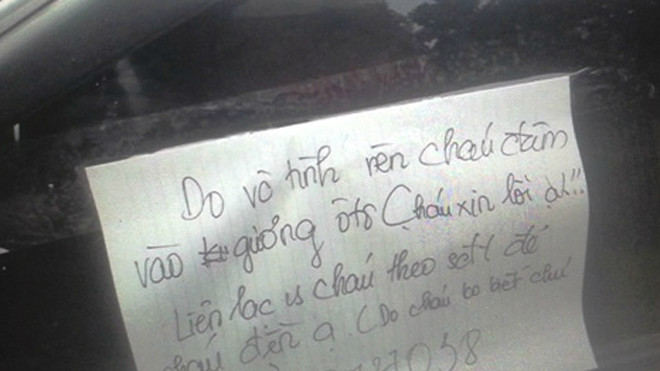 Do vô tình nên cháu đâm
vào gương ôtô Cháu xin lỗi ạ!!
Liên lạc vs cháu theo sđt để
cháu đền ạ. (Do cháu ko biết chủ
27058